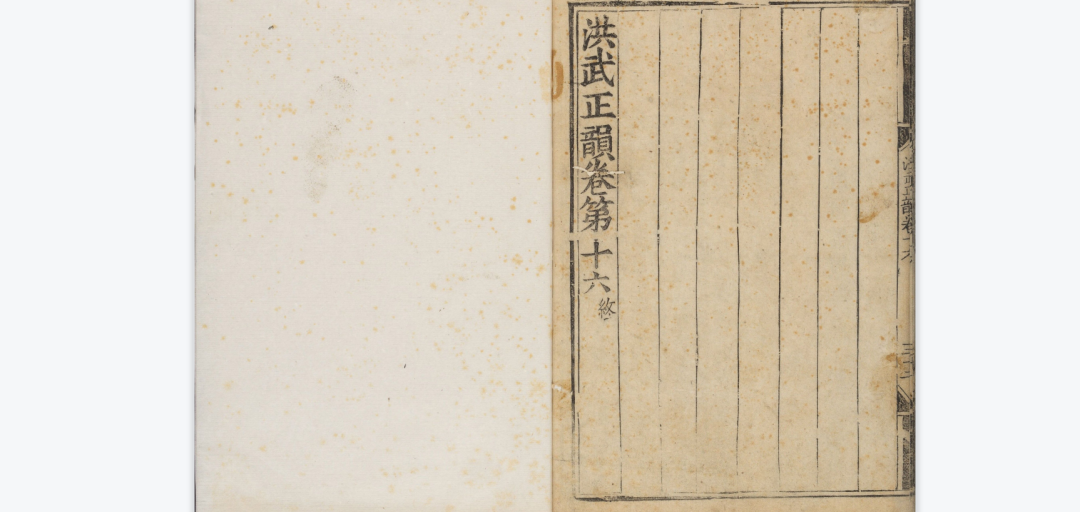 洪武正韻卷第十六 終
洪武正韻卷十六